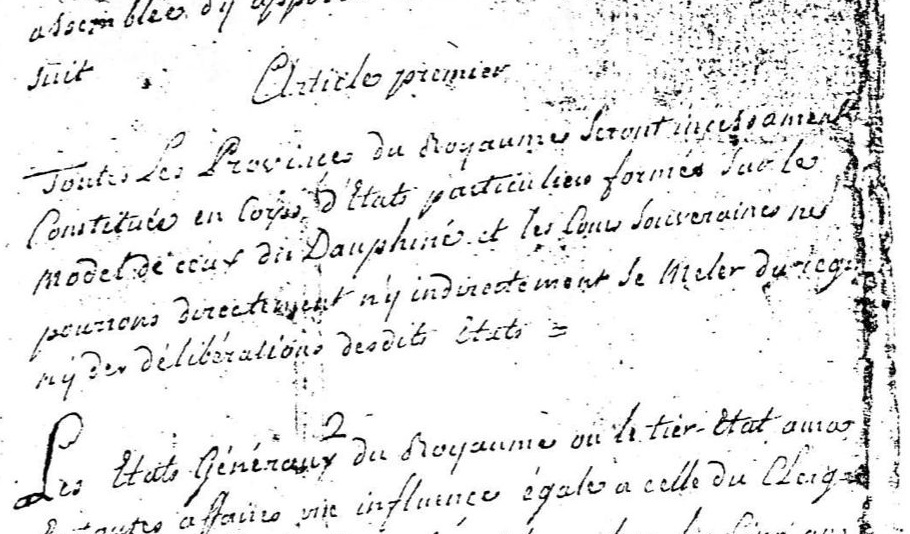 assemblée dy
suit
Article premier
Toutes Les Provinces du Royaume Seront incessament
Constituée en Corps d'Etats particuliers formés sur le
model de ceux du Dauphiné et les Cours Souveraines ne
pourrons directement n'y indirectement se Meler du
n'y des délibérations desdits Etats =
2
Les Etats Généraux du Royaume ou le tier-Etat aura
toutes affaires une influence égale a celle du